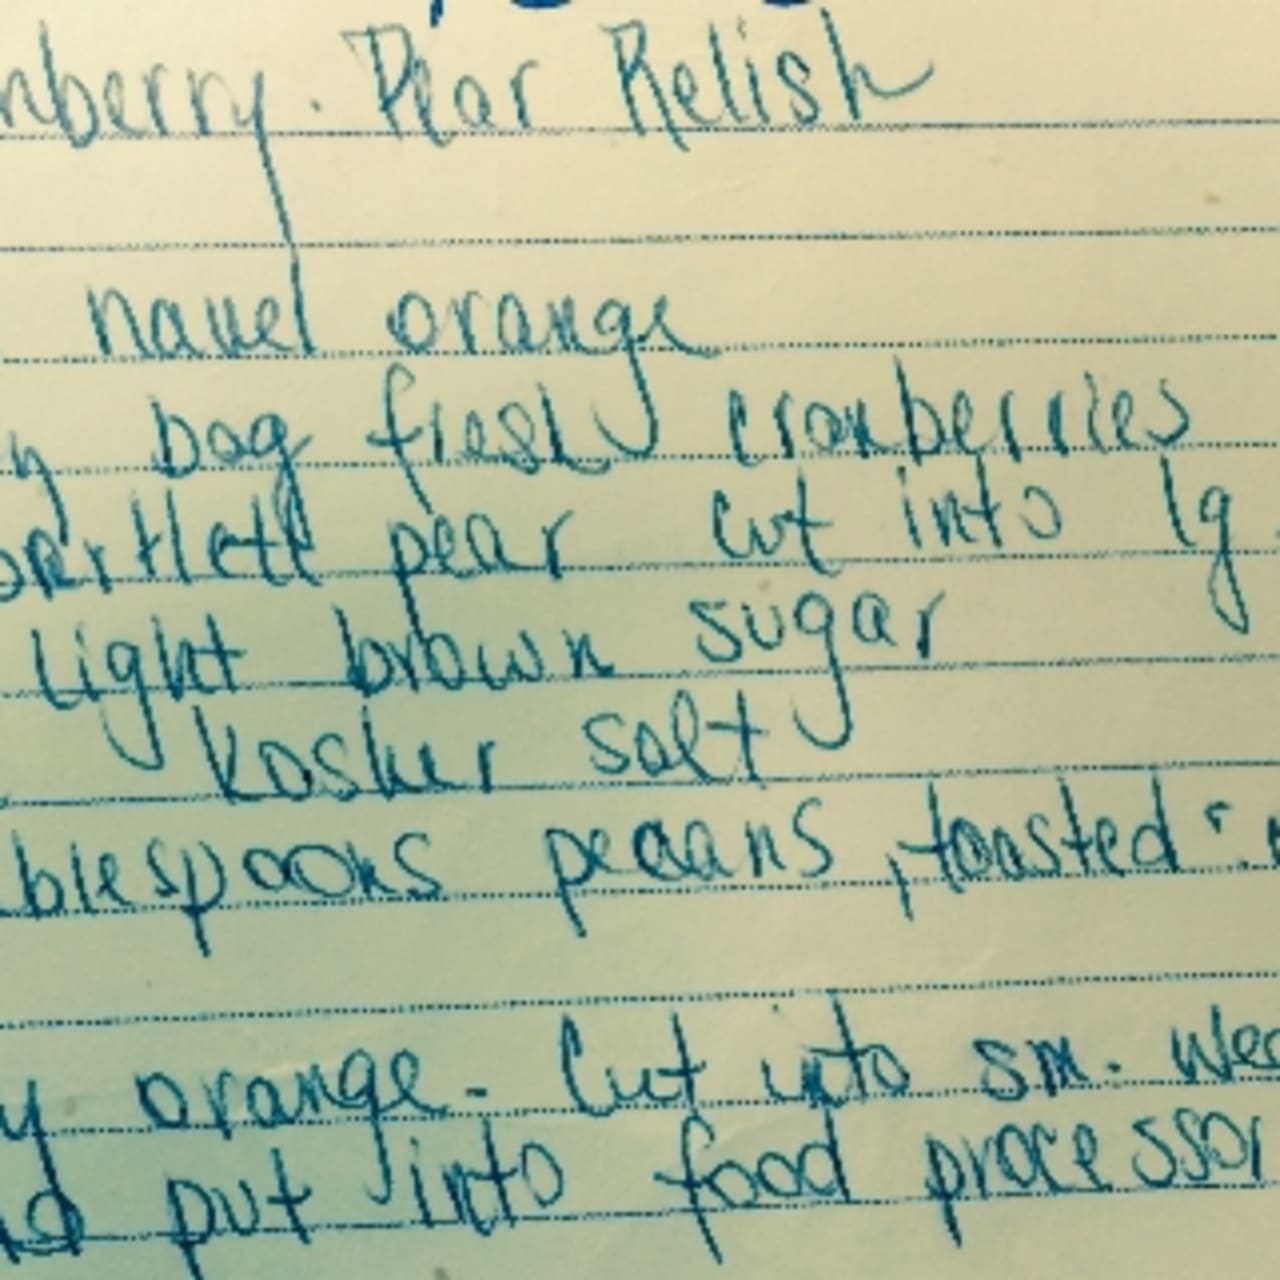 nberry. Pear Relish
navel orange
bag fresh cranberries
bartlett pear cut into lg
light brown sugar
kosher salt
blespoons pecans, toasted
y orange. Cut into sm. wed
put into food processor